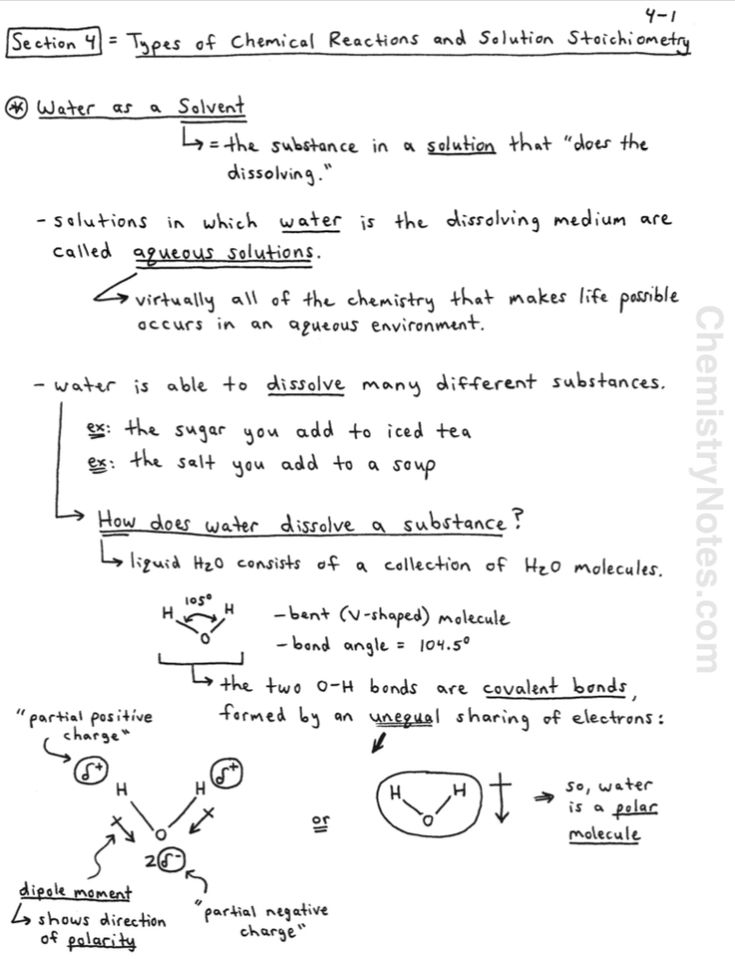 4-1
Section 4 = Types of Chemical Reactions and Solution Stoichiometry
* Water as a Solvent
= the substance in a solution that "does the
dissolving."
- solutions in which water is the dissolving medium are
called aqueous solutions.
virtually all of the chemistry that makes life possible
occurs in an aqueous environment.
- water is able to dissolve many different substances.
ex: the sugar you add to iced tea
ex: the salt you add to a soup
How does water dissolve a substance?
liquid H2O consists of a collection of H2O molecules.
105°
H H
O
- bent (V-shaped) molecule
- bond angle = 104.5°
the two O-H bonds are covalent bonds,
formed by an unequal sharing of electrons:
"partial positive
charge"
δ+ δ+
H H
O
2δ-
or
H H
O
so, water
is a polar
molecule
dipole moment
shows direction
of polarity
"partial negative
charge"
ChemistryNotes.com